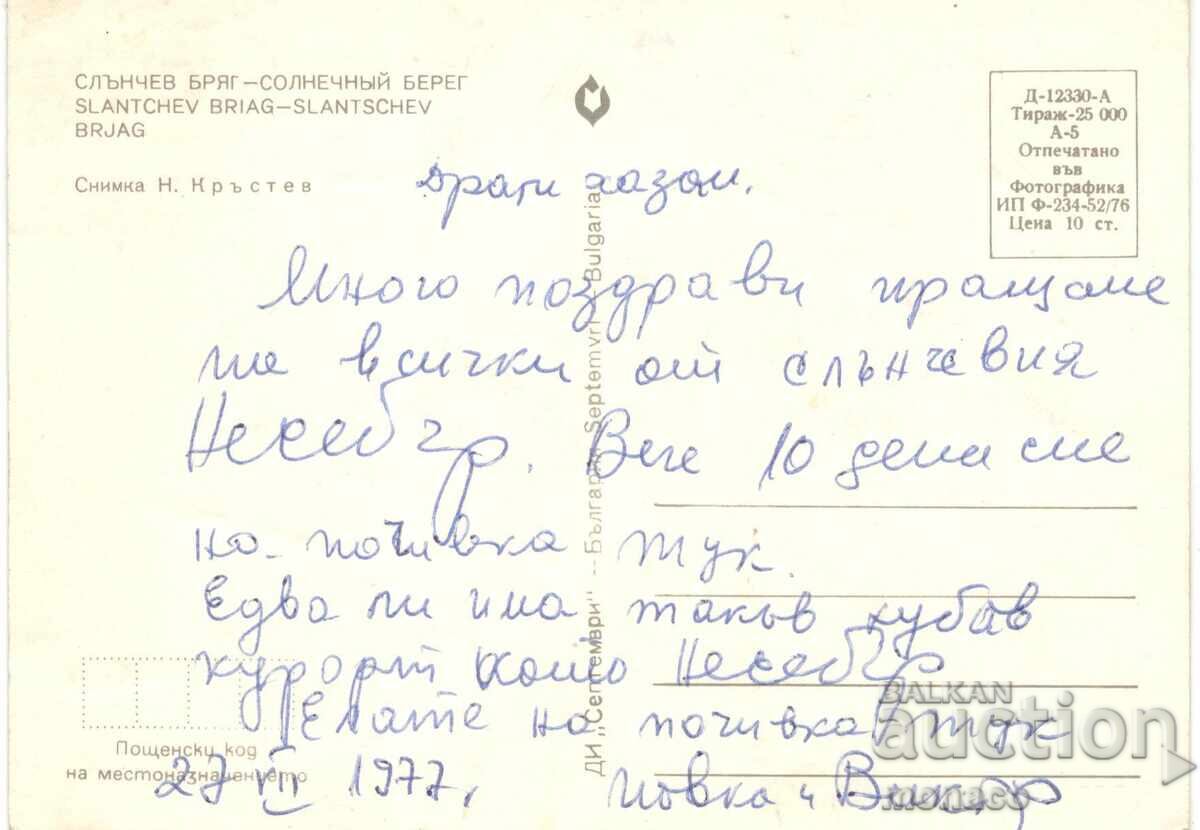 СЛЪНЧЕВ БРЯГ–СОЛНЕЧНЫЙ БЕРЕГ
SLANTCHEV BRIAG–SLANTSCHEV
BRJAG
Снимка Н. Кръстев
Д-12330-А
Тираж-25 000
А-5
Отпечатано
във
Фотографика
ИП Ф-234-52/76
Цена 10 ст.
Драги
Много поздрави пращаме
на всички от слънчевия
Несебър. Вече 10 дена сме
на почивка тук.
Едва ли има такъв хубав
курорт като Несебър
Елате на почивка тук
27 III 1977, Йовка и
ДИ „Септември" – България Septemvri – Bulgaria
Пощенски код
на местоназначението
BALKAN
auction
monaco